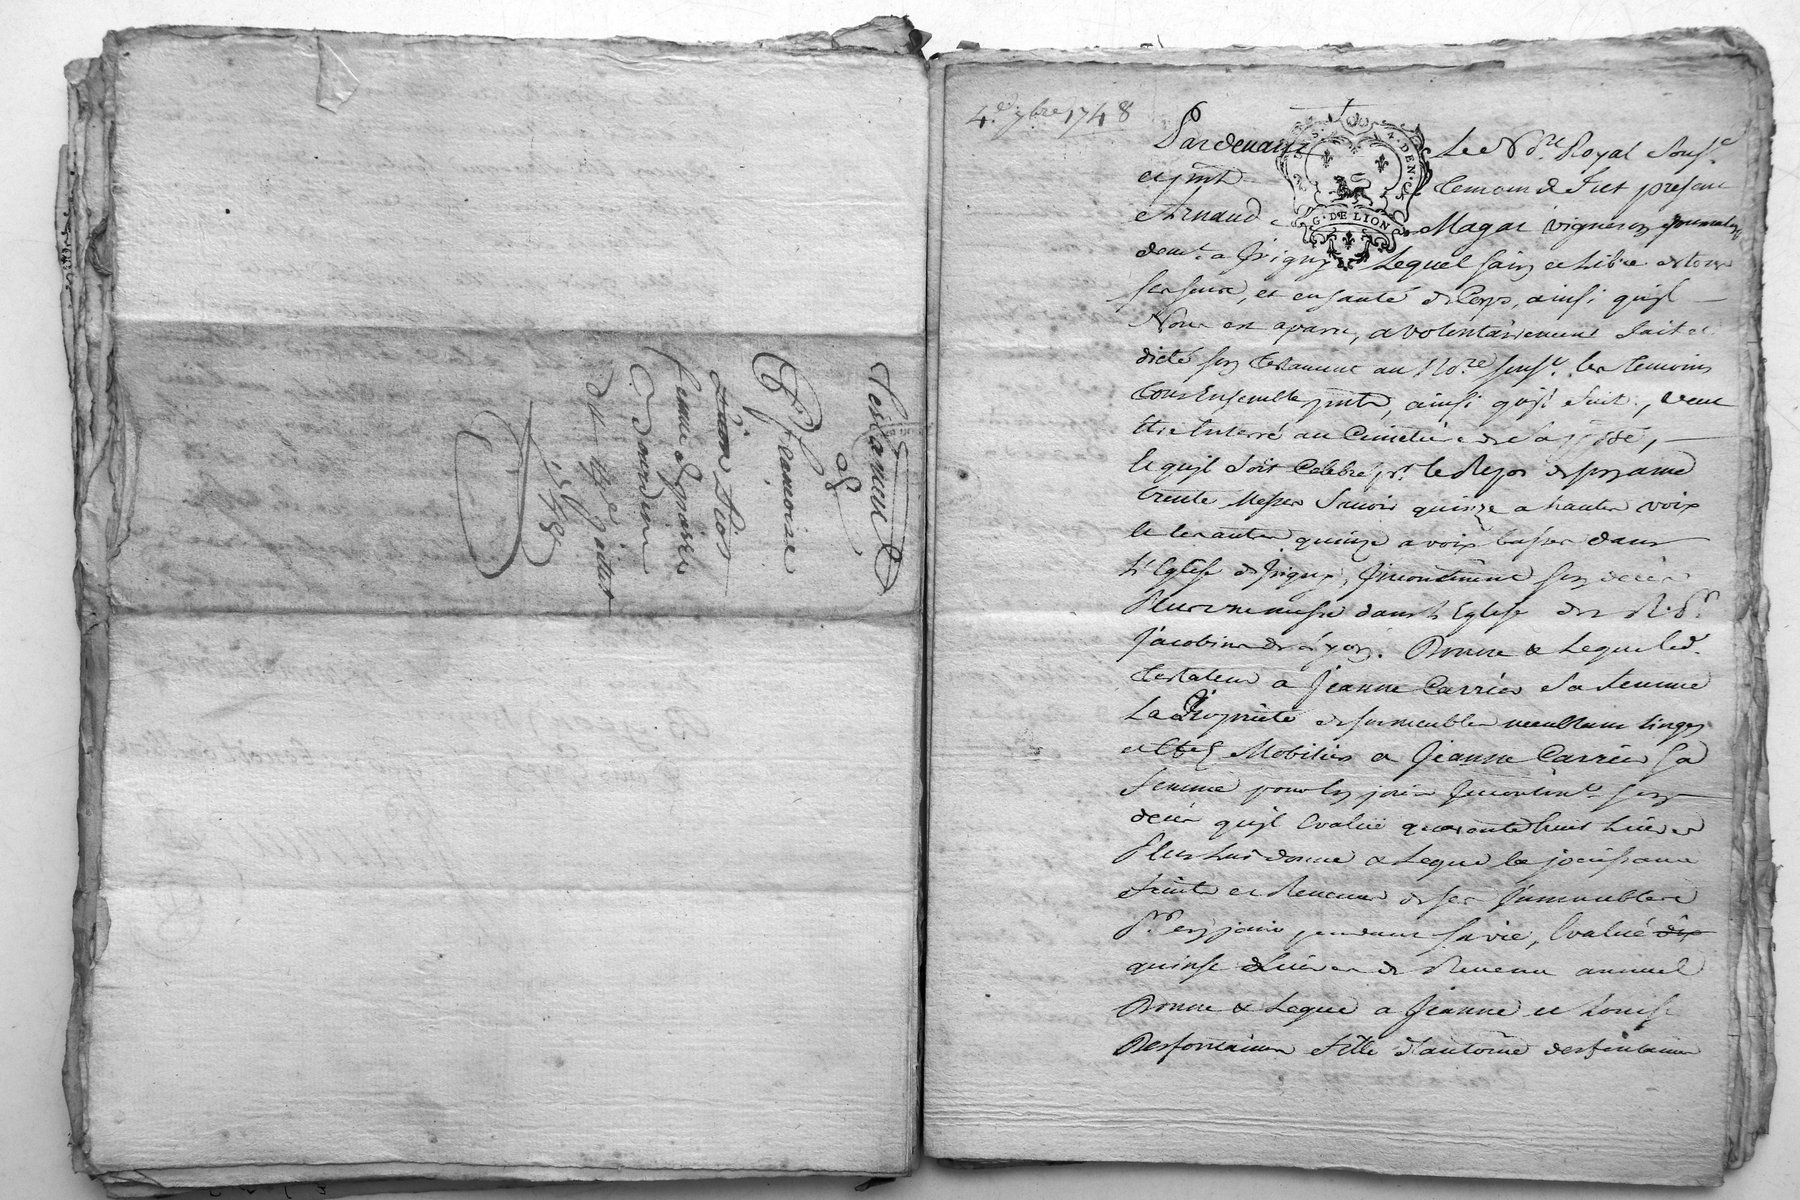 Testament
de
françoise
femme
1748
4.e 7bre 1748
Pardevant Le No.re Royal Sous.e
et temoins present
G. DE LION
Arnaud Magat vigneron
dem.t a Irigny Lequel sain et Libre de tous
ses sens, et en santé de Corps, ainsi quil
Nous est aparu, a volontairement fait et
dicté son testament au No.re sous.e les temoins
tous Ensemble pnts, ainsi quil suit, veut
Etre Enterré au Cimetiere de
et quil soit Celebré p.r le Repos de son ame
trente Messes Savoir quinze a hautes voix
et les autres quinze a voix basses dans
L'Eglise d'Irigny, Incontinent son decès
Plus une messe dans L'Eglise des R.P.
Jacobins de Lyon. Donne & Legue led.
testateur a Jeanne Carrier sa femme
La Proprieté de ses meubles meublans linges
et Effets Mobiliers a Jeanne Carrier sa
femme pour en jouir Incontint son
decès quil Evalue quarante huit Livres
Plus Lui donne & Legue la jouissance
fruits et Revenus de ses Immeubles
P.r en jouir pendant sa vie, Evalué dix
quinse Livres de Revenu annuel
Donne & Legue a Jeanne et Louise
Desfontaines fille d'antoine desfontaines